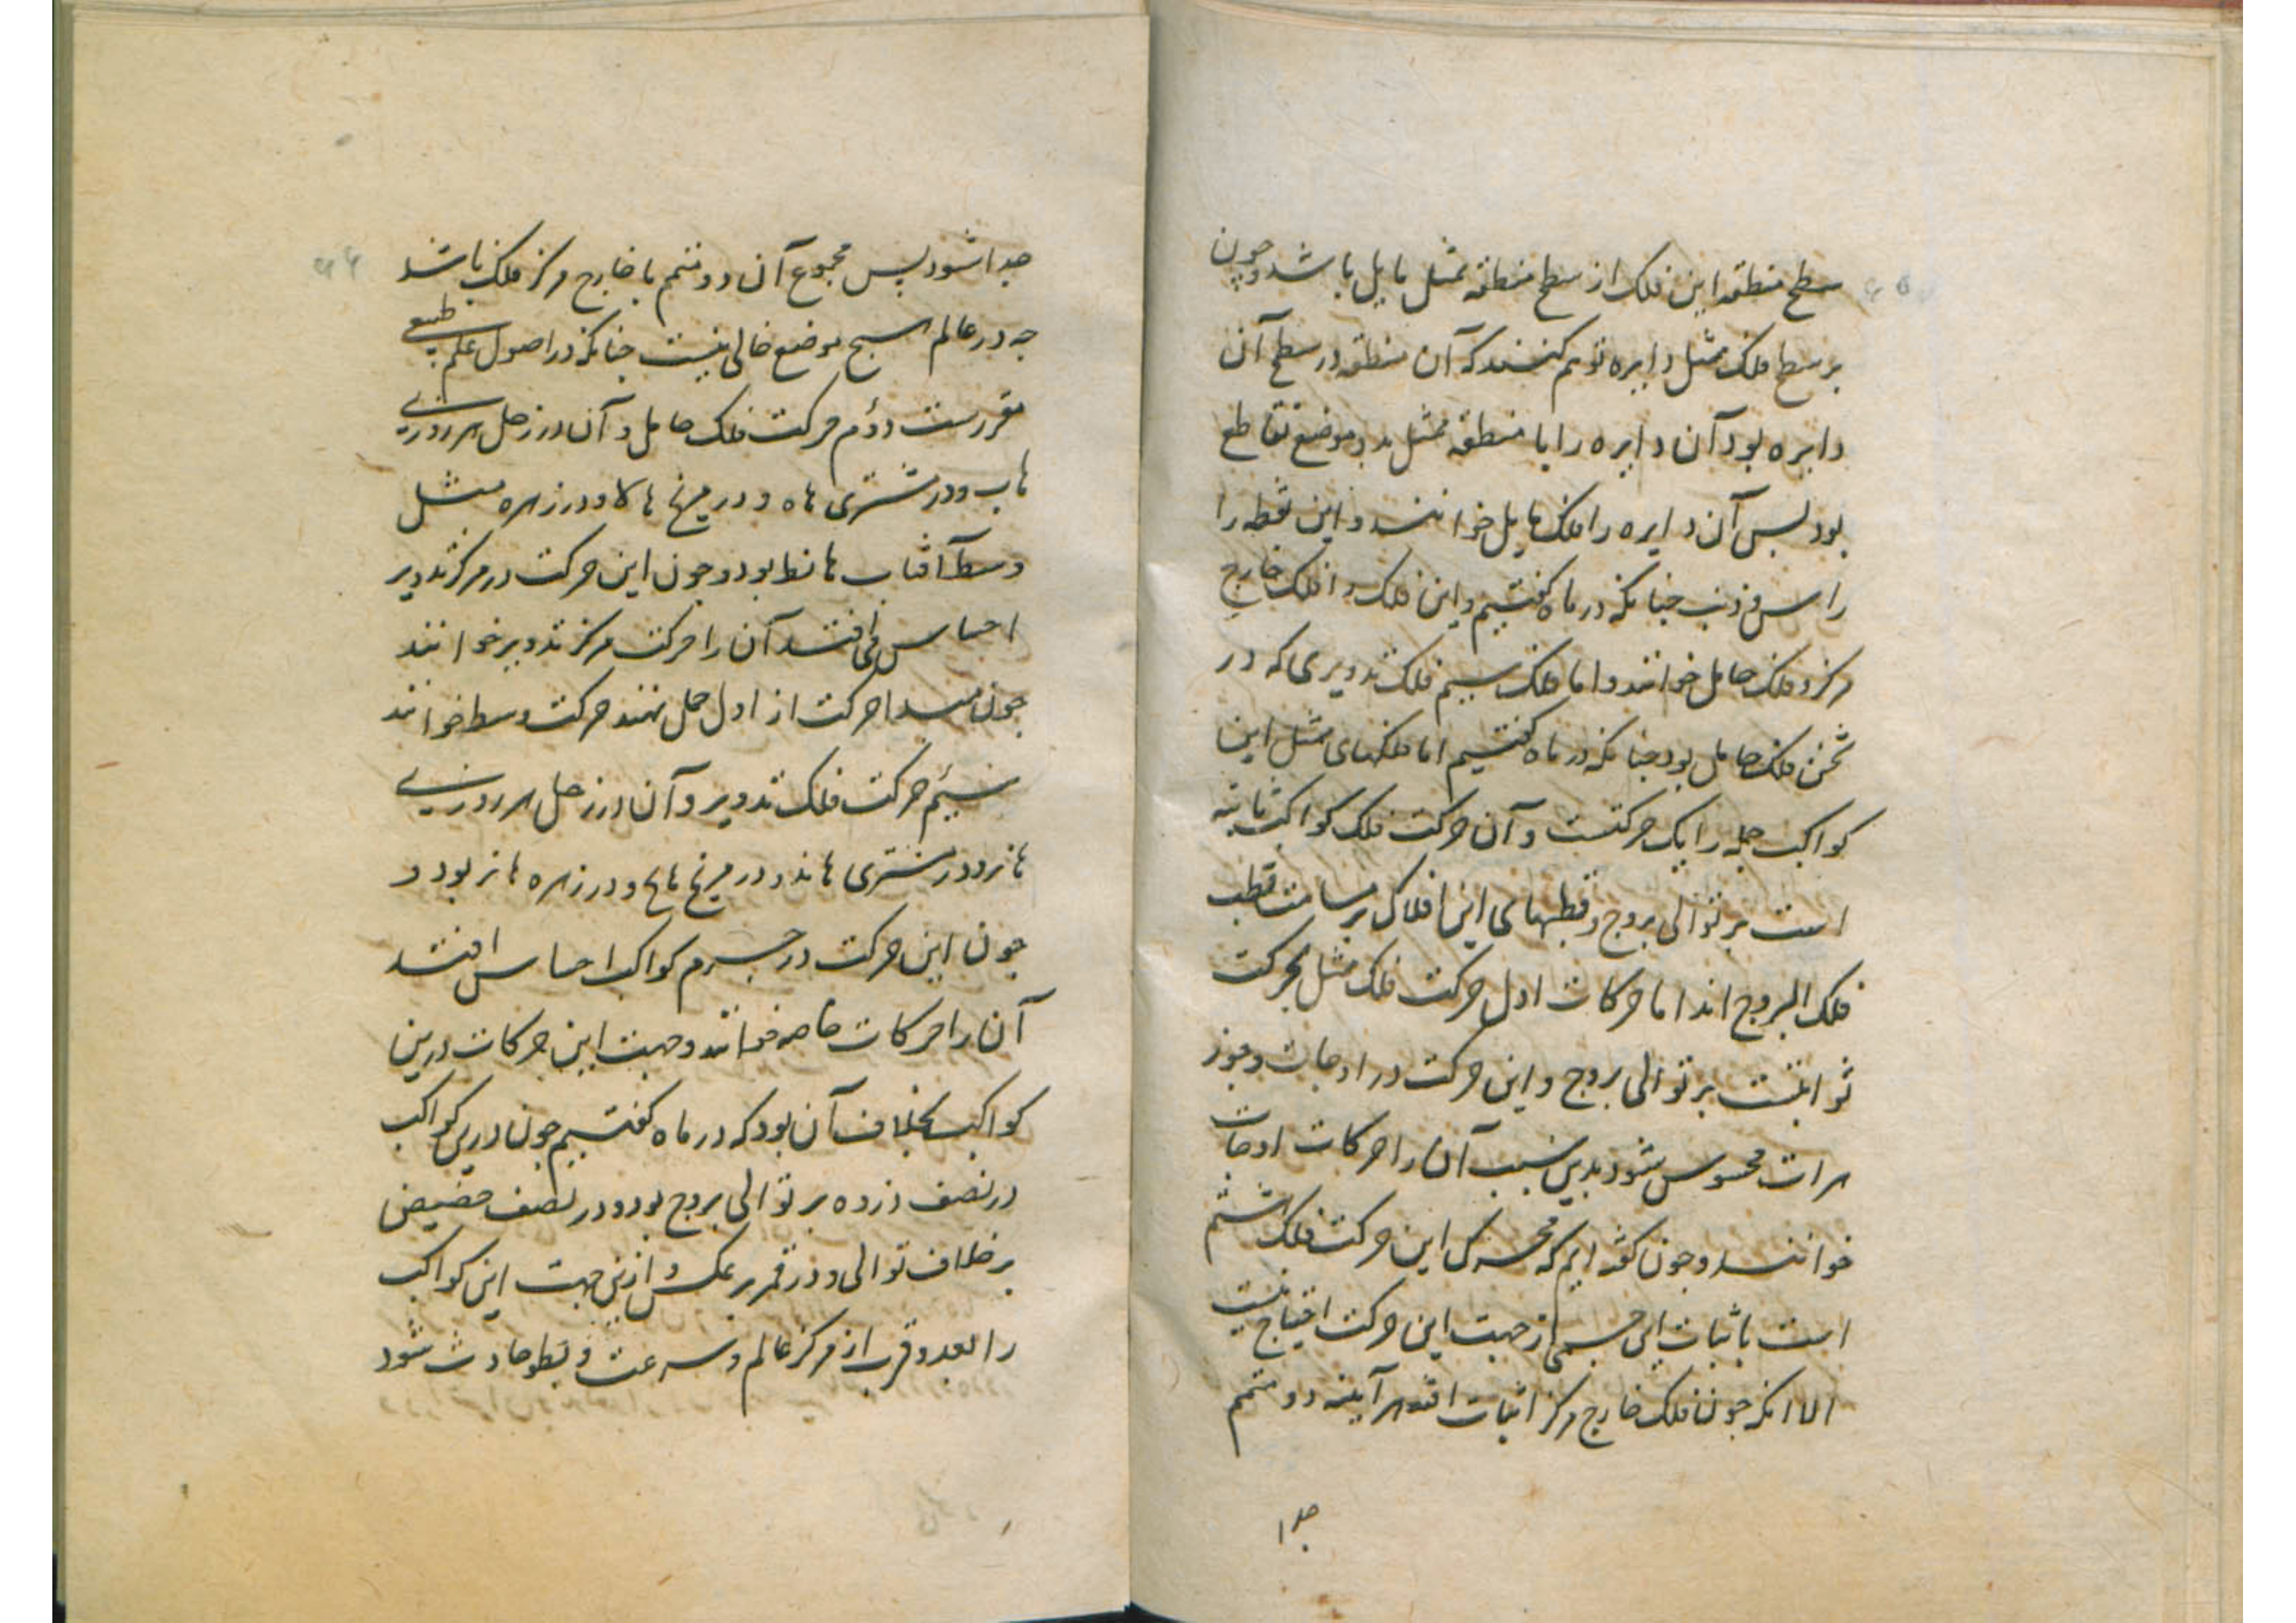 سطح منطقه این فلک از سطح منطقه ممثل مایل باشد و چون
بر سطح فلک ممثل دایره توهم کنند که آن منطقه در سطح آن
دایره بود آن دایره را با منطقه ممثل بدو موضع تقاطع
بود بس آن دایره را فلک مایل خوانند و این نقطه را
راس و ذنب جنانکه در ماه کفتیم و این فلک را فلک خارج
مرکز و فلک حامل خوانند و اما فلک سیم فلک تدویری که در
ثخن فلک حامل بود جنانکه در ماه کفتیم اما فلکهای ممثل این
کواکب جمله را یک حرکتست و آن حرکت فلک کواکب ثابته
است بر توالی بروج و قطبهای این افلاک بر مسامت قطب
فلک البروج اند اما حرکات اول حرکت فلک ممثل بحرکت
ثوابتست بر توالی بروج و این حرکت در اوجات و جوز
هرات محسوس شود بدین سبب آن را حرکات اوجات
خوانند و جون کفته ایم که محرک این حرکت فلک هشتم
است باثبات این جسمی از جهت این حرکت احتیاج نیست
الا انکه جون فلک خارج مرکز اثبات افتد هر آینه دو متمم
جدا
جدا شود پس مجموع آن دو متمم با خارج مرکز فلک باشد
جه در عالم هیچ موضع خالی نیست جنانکه در اصول علم طبیعی
مقررست دوم حرکت فلک حامل و آن در زحل هر روزی
ها ب و در مشتری ها ه و در مریخ ها لا و در زهره مثل
وسط آفتاب ها نط بود و جون این حرکت در مرکز تدویر
احساس می افتد آن را حرکت مرکز تدویر خوانند
جون مبدا حرکت از اول حمل نهند حرکت وسط خوانند
سیم حرکت فلک تدویر و آن در زحل هر روزی
ها نز و در مشتری ها ند و در مریخ ها ح و در زهره ها نر بود و
جون این حرکت در جرم کواکب احساس افتد
آن را حرکات خاصه خوانند و جهت این حرکات درین
کواکب بخلاف آن بود که در ماه کفتیم جون درین کواکب
در نصف ذروه بر توالی بروج بود و در نصف حضیض
بر خلاف توالی و در قمر بر عکس و ازین جهت این کواکب
را بعد و قرب از مرکز عالم و سرعت و بطو حادث شود